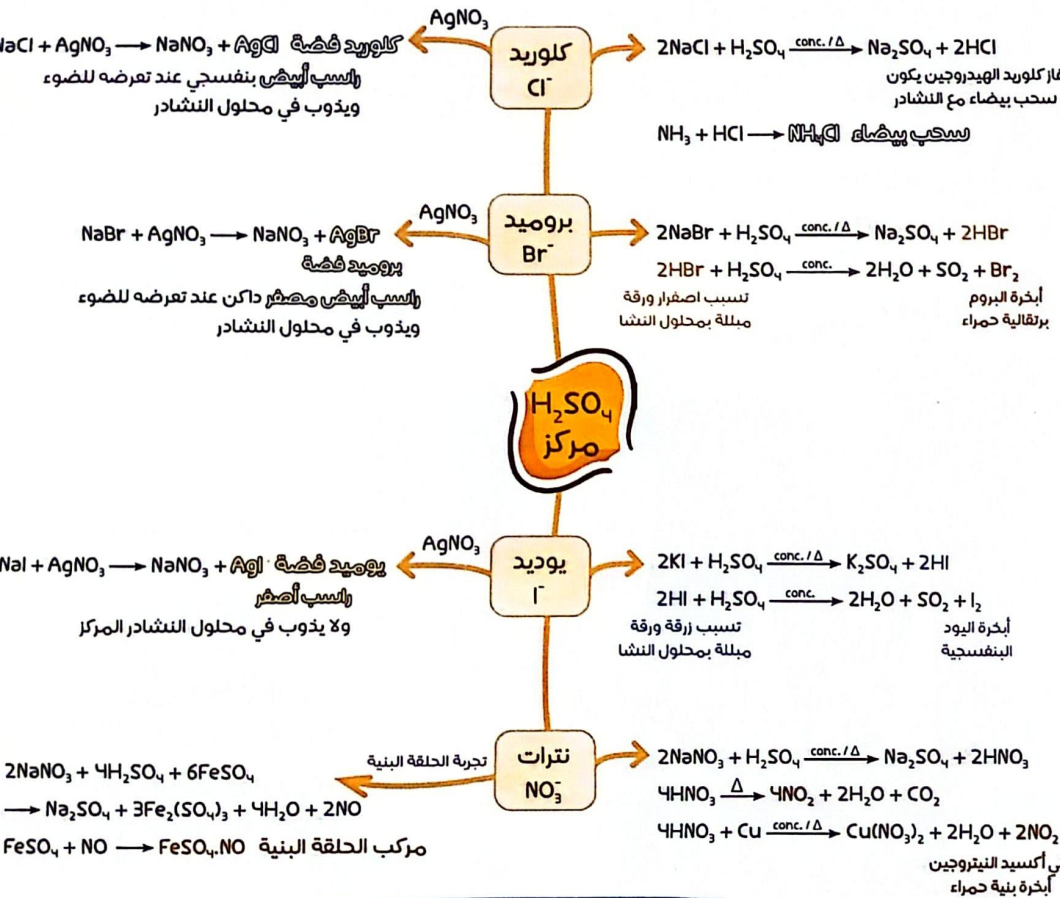 كلوريد
Cl⁻
AgNO₃
NaCl + AgNO₃ ⟶ NaNO₃ + AgCl كلوريد فضة
راسب أبيض بنفسجي عند تعرضه للضوء
ويذوب في محلول النشادر
2NaCl + H₂SO₄ conc. / Δ ⟶ Na₂SO₄ + 2HCl
كلوريد الهيدروجين يكون
سحب بيضاء مع النشادر
NH₃ + HCl ⟶ NH₄Cl سحب بيضاء
بروميد
Br⁻
AgNO₃
NaBr + AgNO₃ ⟶ NaNO₃ + AgBr
بروميد فضة
راسب أبيض مصفر داكن عند تعرضه للضوء
ويذوب في محلول النشادر
2NaBr + H₂SO₄ conc. / Δ ⟶ Na₂SO₄ + 2HBr
2HBr + H₂SO₄ conc. ⟶ 2H₂O + SO₂ + Br₂
أبخرة البروم
برتقالية حمراء
تسبب اصفرار ورقة
مبللة بمحلول النشا
H₂SO₄
مركز
يوديد
I⁻
AgNO₃
NaI + AgNO₃ ⟶ NaNO₃ + AgI يوميد فضة
راسب أصفر
ولا يذوب في محلول النشادر المركز
2KI + H₂SO₄ conc. / Δ ⟶ K₂SO₄ + 2HI
2HI + H₂SO₄ conc. ⟶ 2H₂O + SO₂ + I₂
أبخرة اليود
البنفسجية
تسبب زرقة ورقة
مبللة بمحلول النشا
نترات
NO₃⁻
تجربة الحلقة البنية
2NaNO₃ + 4H₂SO₄ + 6FeSO₄
⟶ Na₂SO₄ + 3Fe₂(SO₄)₃ + 4H₂O + 2NO
FeSO₄ + NO ⟶ FeSO₄.NO مركب الحلقة البنية
2NaNO₃ + H₂SO₄ conc. / Δ ⟶ Na₂SO₄ + 2HNO₃
4HNO₃ Δ ⟶ 4NO₂ + 2H₂O + CO₂
4HNO₃ + Cu conc. / Δ ⟶ Cu(NO₃)₂ + 2H₂O + 2NO₂
أكسيد النيتروجين
أبخرة بنية حمراء